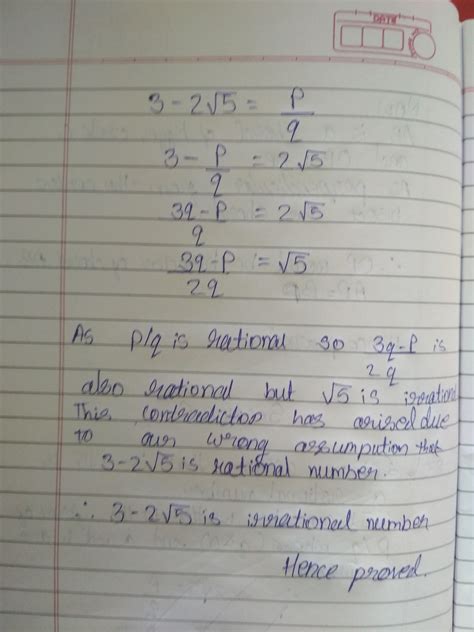 DATE
3 - 2√5 = P/q
3 - P/q = 2√5
3q - P/q = 2√5
3q - P/2q = √5
As P/q is rational so 3q-P/2q is
also rational but √5 is irrational
This contradiction has arised due
to our wrong assumpution that
3 - 2√5 is rational number.
∴ 3 - 2√5 is irrational number
Hence proved.